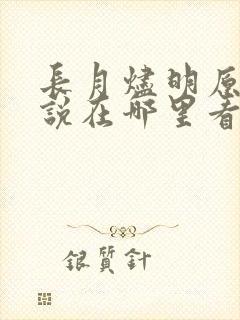 長月燼明原
說在哪里看
銀質針